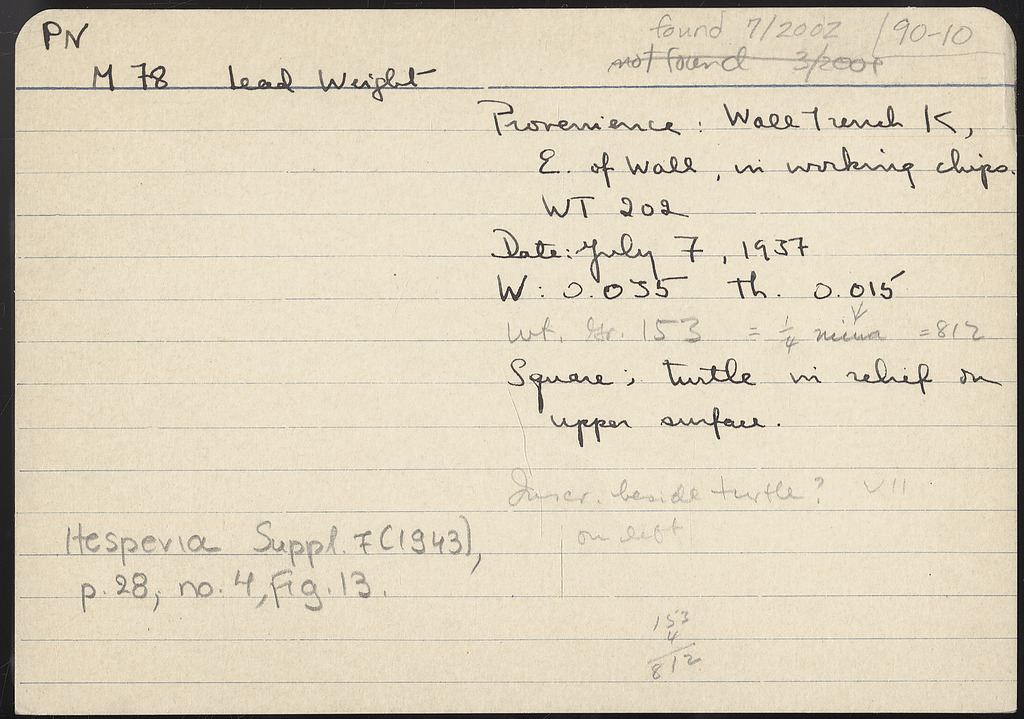 PN
found 7/2002 /90-10
not found 3/2001
M 78 Lead Weight
Provenience: Wall Trench K,
E. of Wall, in working chips.
WT 202
Date: July 7, 1937
W: 0.035 Th. 0.015
Wt. Gr. 153 = 1/4 mina = 812
Square; turtle in relief on
upper surface.
Inscr. beside turtle? VII
on left
Hesperia Suppl. 7 (1943),
p. 28, no. 4, Fig. 13.
153
4
812